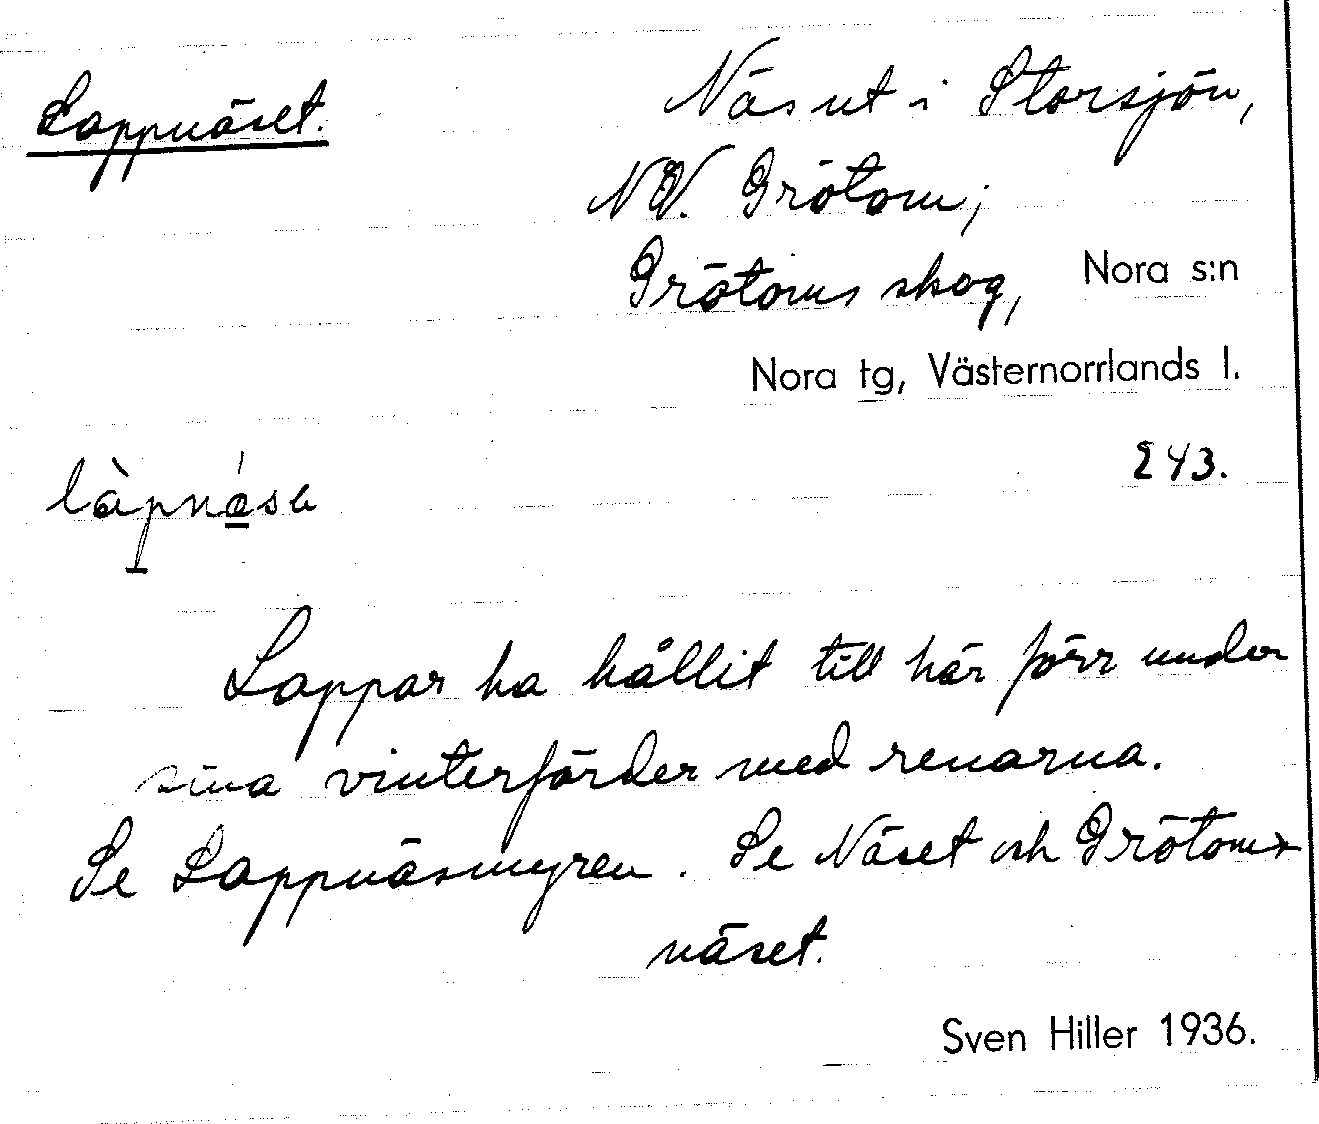 Lappnäset.
Näs ut i Storsjön,
NV. Grötom;
Grötoms skog, Nora s:n
Nora tg, Västernorrlands l.
243.
Lappar ha hållit till här förr under
sina vinterfärder med renarna.
Se Lappnäsmyren. Se Näset och Grötoms
näset.
Sven Hiller 1936.